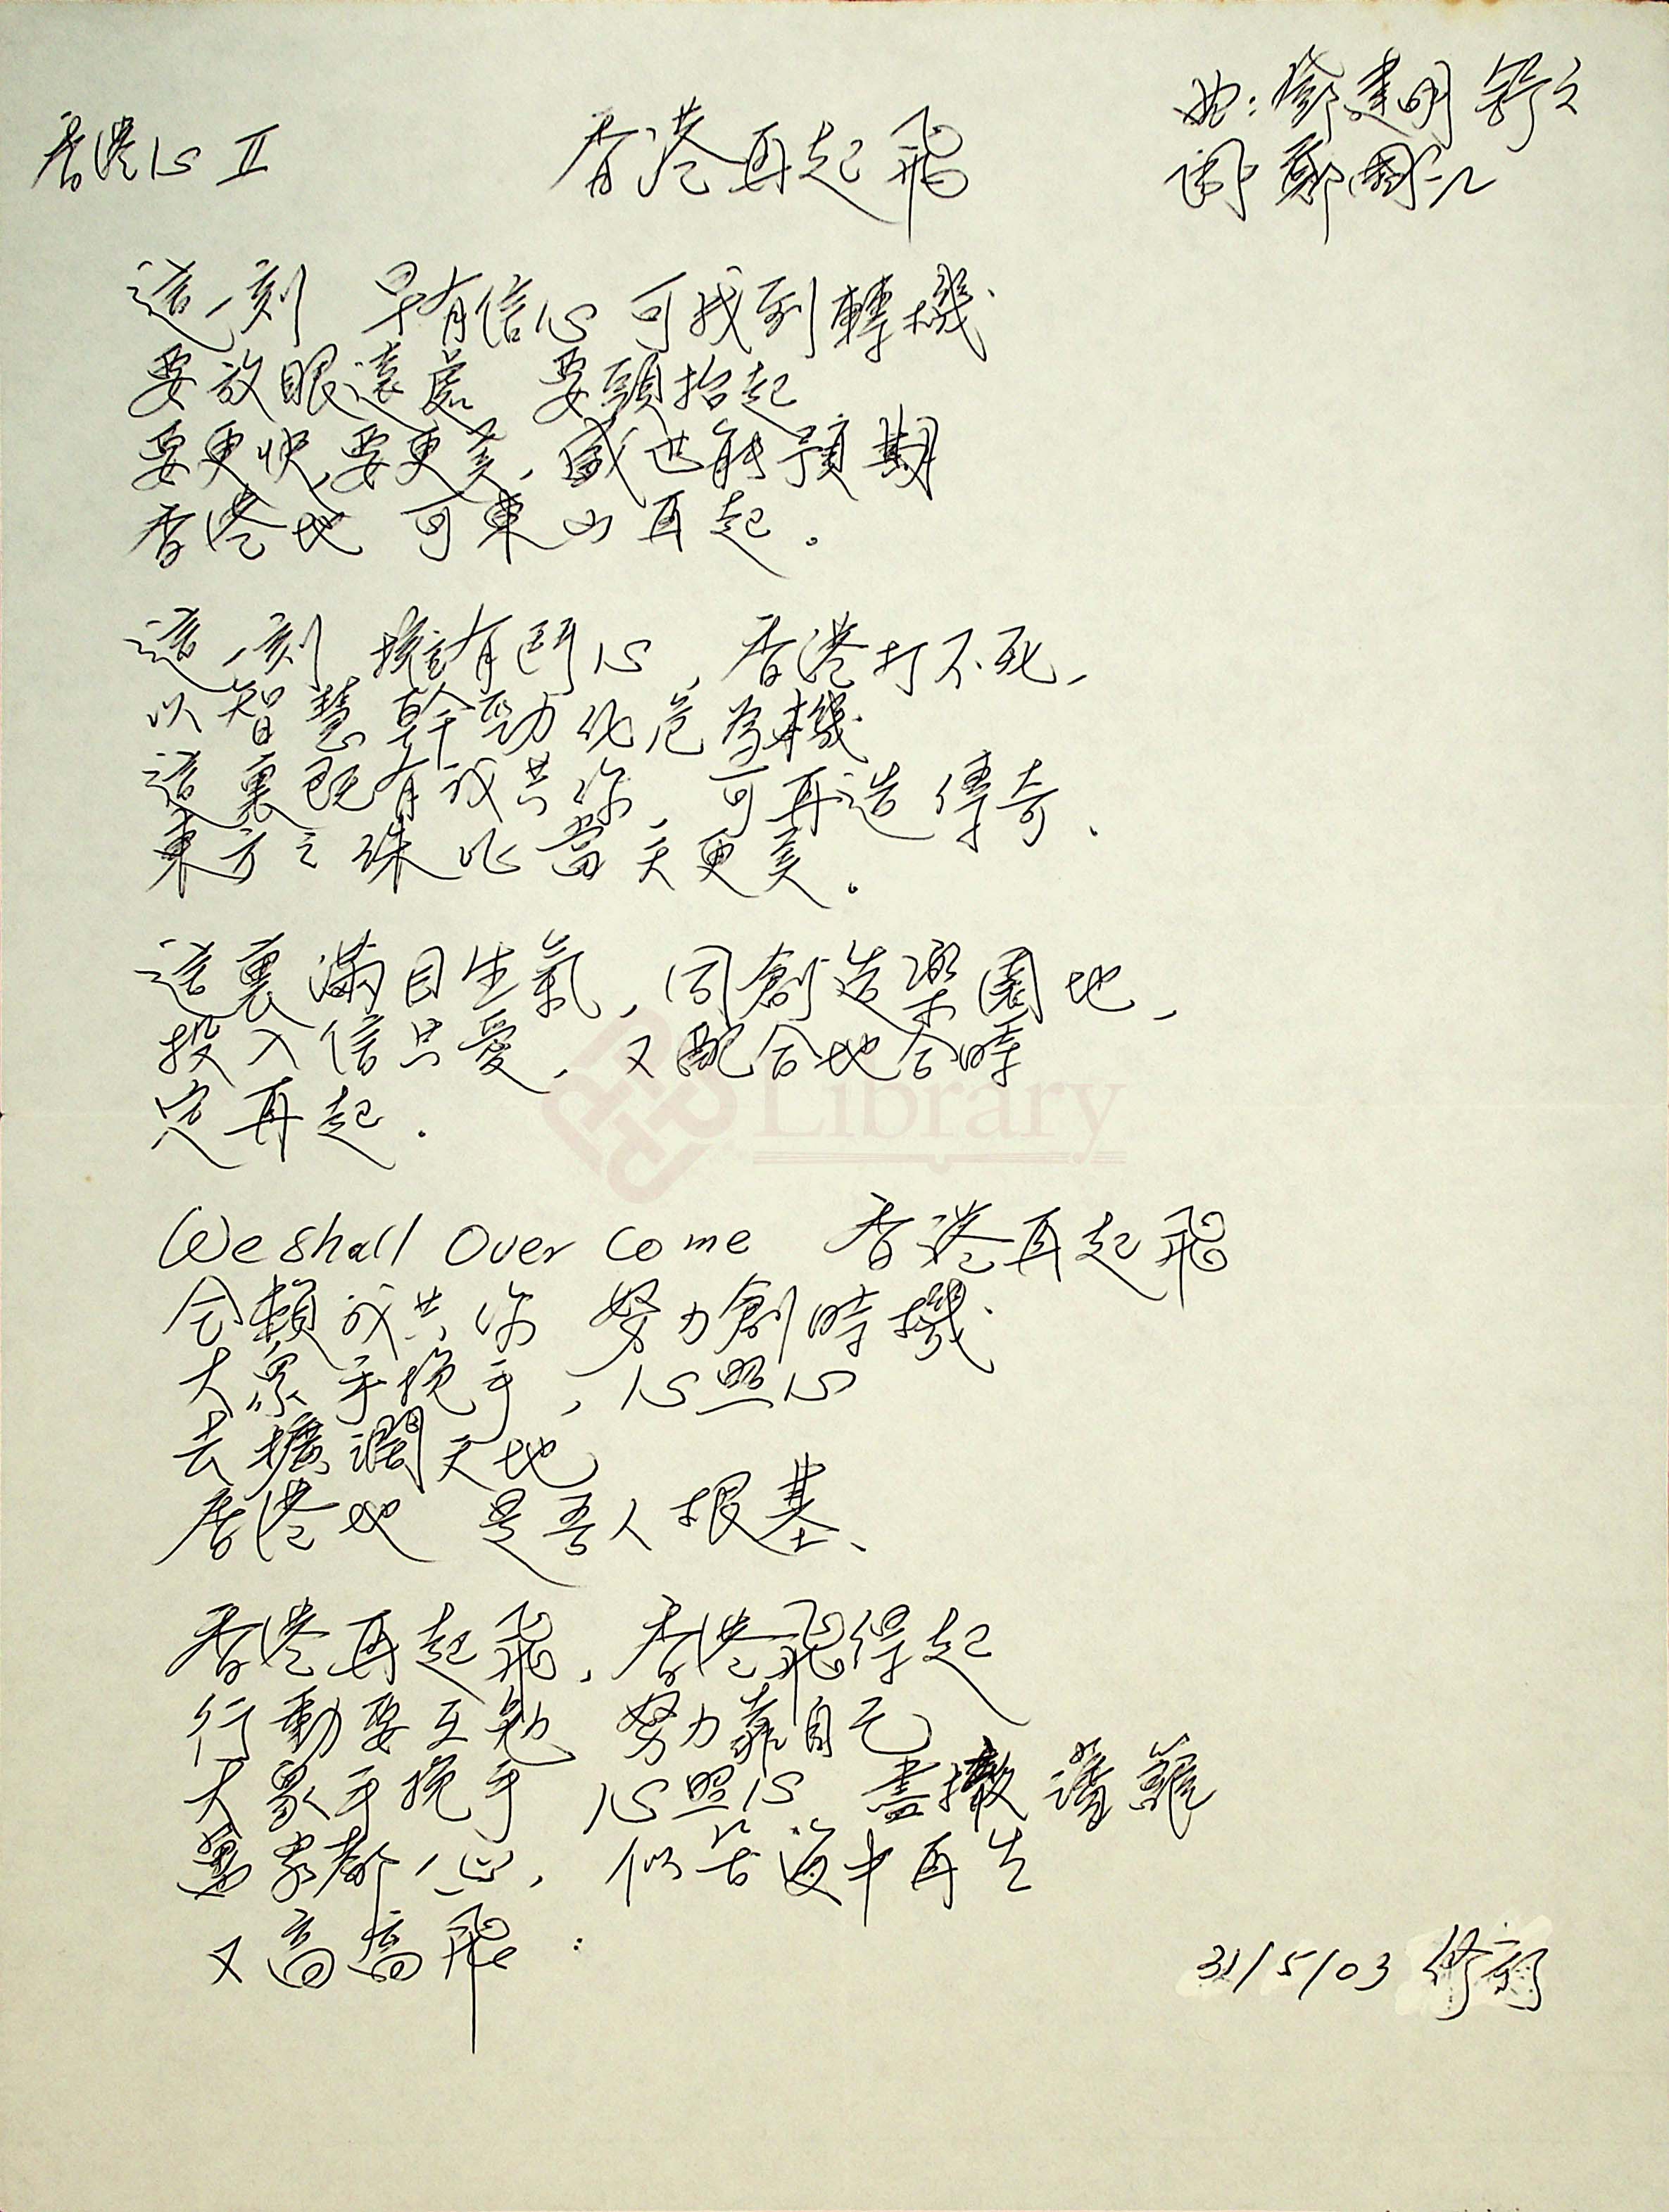 香港心 II
香港再起飛
曲：鄧建明 舒文
詞 鄭國江
這一刻 早有信心 可找到轉機
要放眼遠處 要頭抬起
要更快，要更美，盛世能預期
香港地 可東山再起。
這一刻 擁有鬥心，香港打不死，
以智慧幹勁化危為機
這裏既有我共你，可再造傳奇、
東方之珠比當天更美。
這裏滿目生氣，同創造樂園地，
投入信只愛，又配合地合時
定再起．
Library
We shall over come 香港再起飛
全賴我共你 努力創時機
大眾手挽手，心照心
去擴濶天地
香港地 是吾人根基、
香港再起飛，香港飛得起
行動要互勉 努力靠自己
大眾手挽手 心照心 盡撤藩籬
萬眾都一心，似苦海中再生
又高高飛：
31/5/03 修訂